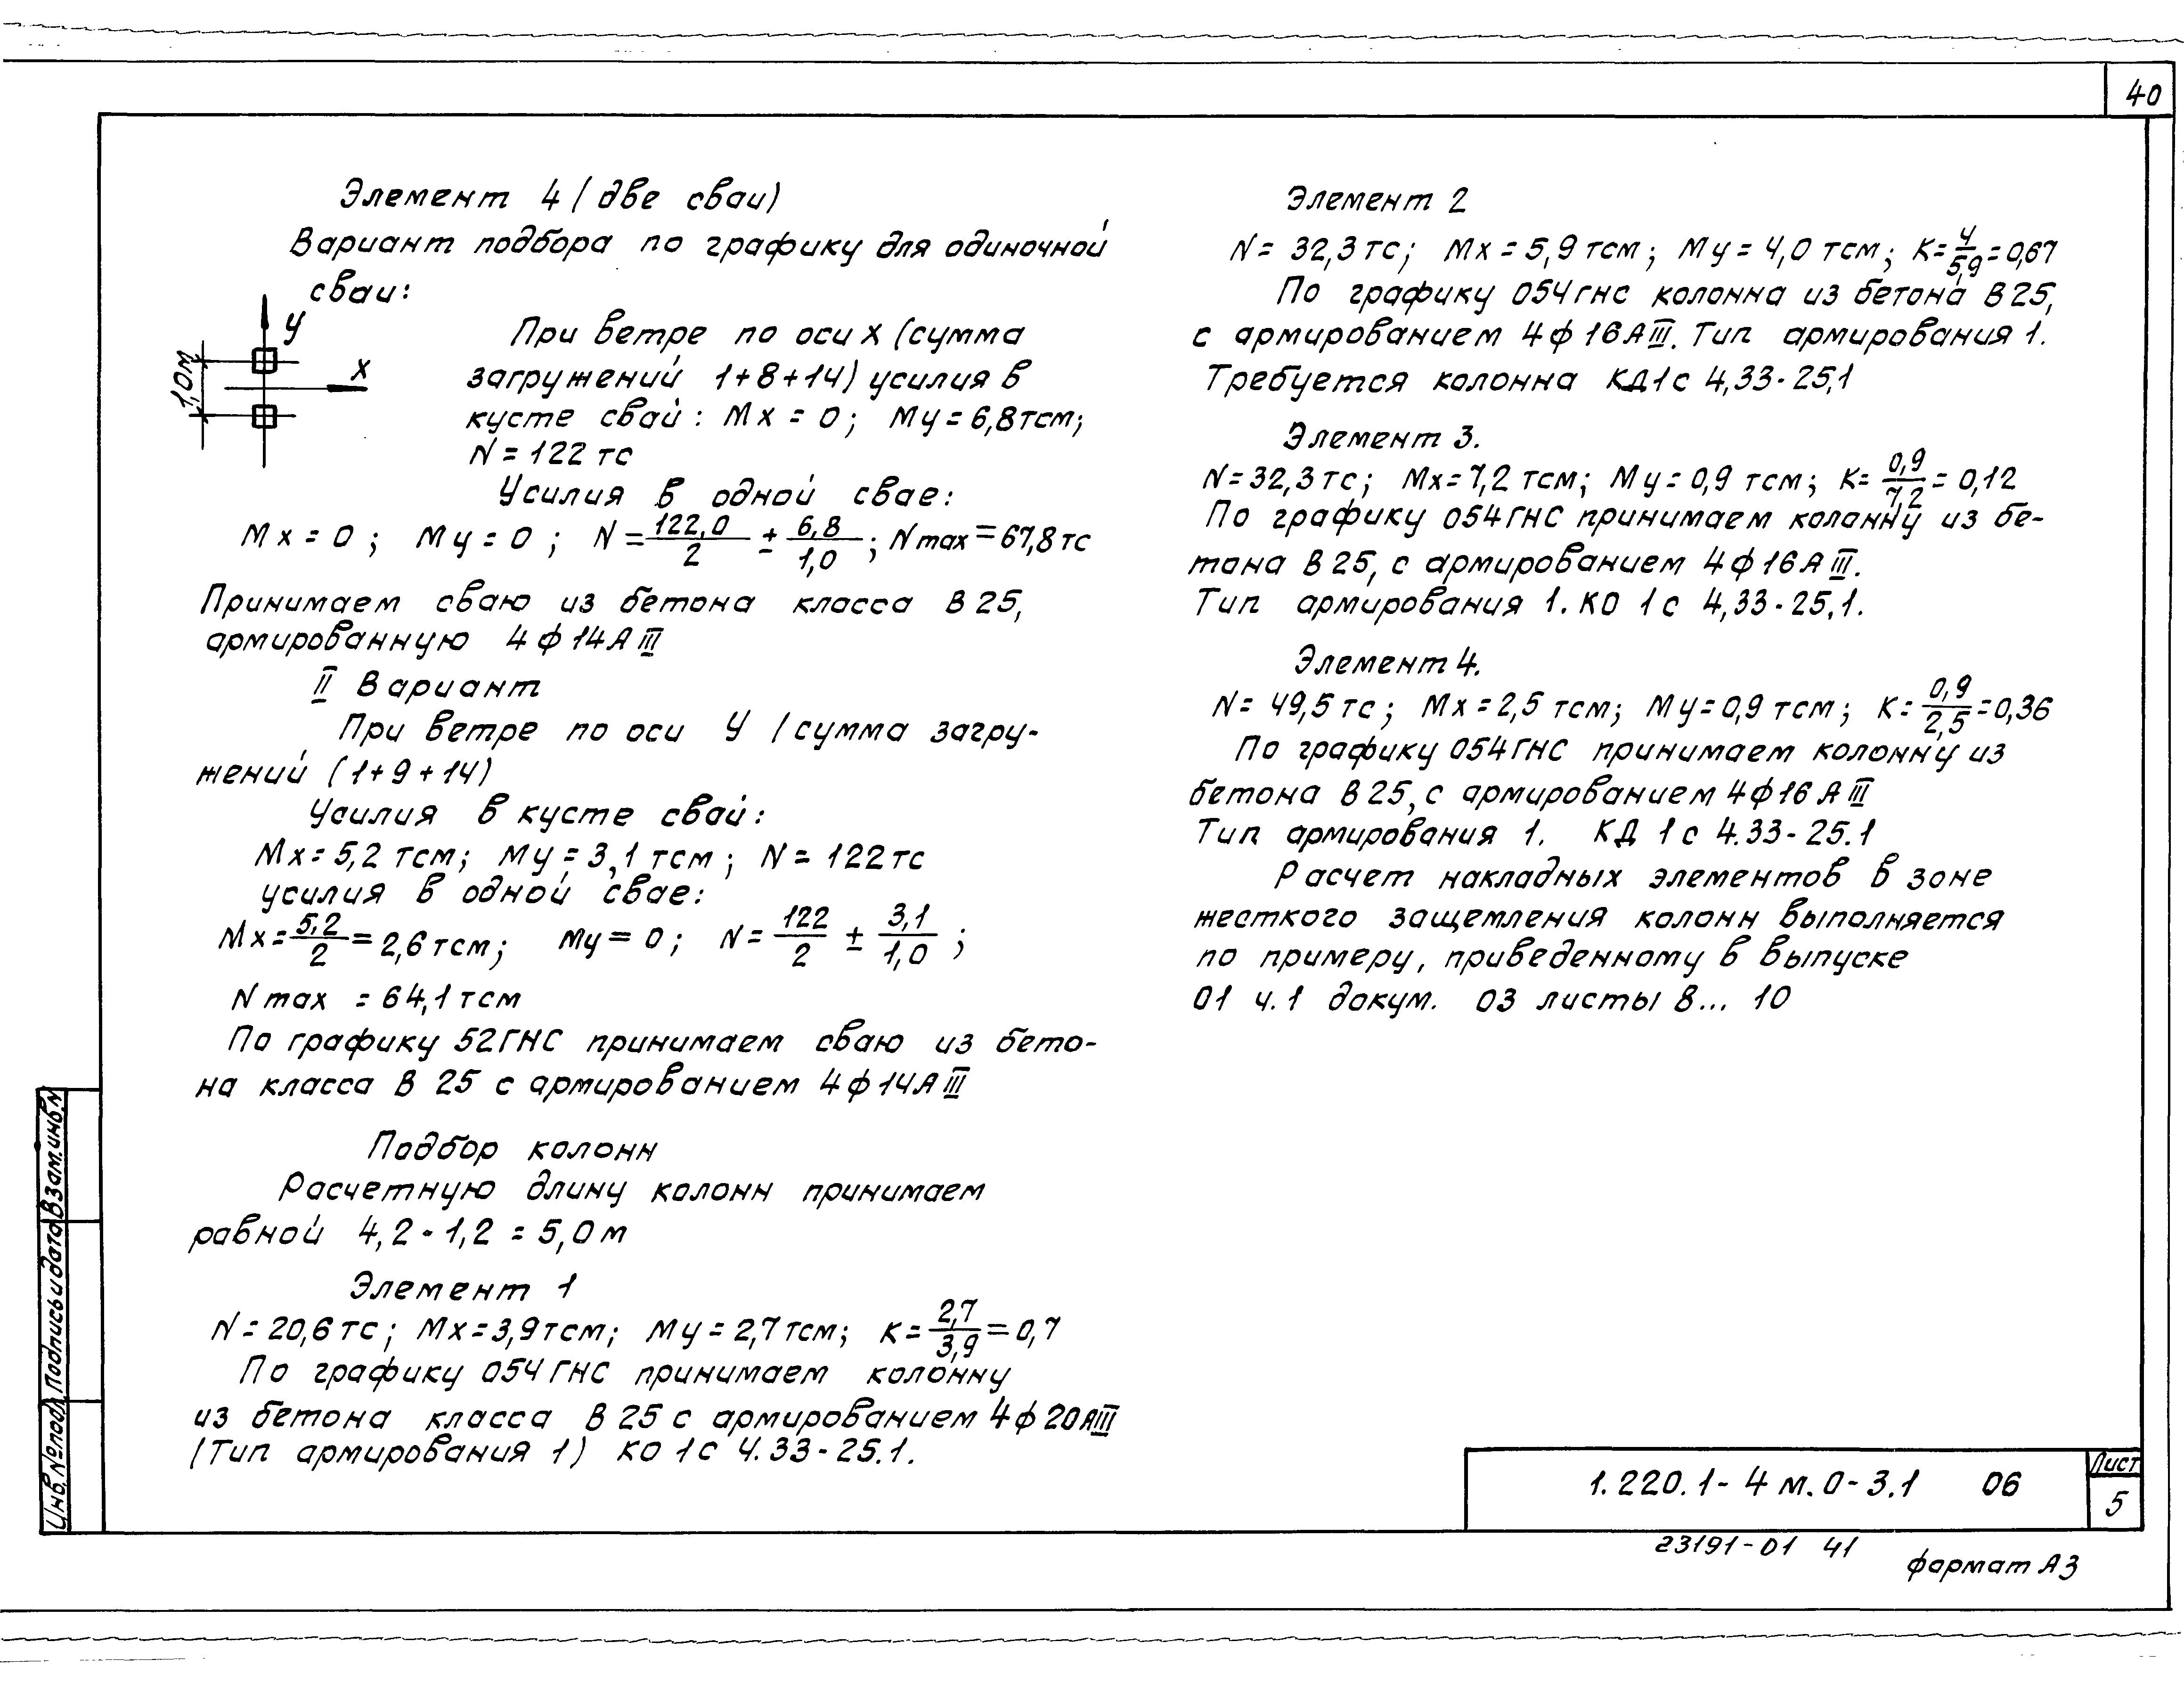 40
Элемент 4 (две сваи)
Вариант подбора по графику для одиночной
сваи:
У
X
1,10м
При ветре по оси X (сумма
загружений 1+8+14) усилия в
кусте свай: Mx = 0; My = 6,8тсм;
N = 122 тс
Усилия в одной свае:
Mx = 0; My = 0; N = 122,0/2 ± 6,8/1,0; N max = 67,8 тс
Принимаем сваю из бетона класса В 25,
армированную 4 ф 14А III
II Вариант
При ветре по оси У (сумма загру-
жений (1+9+14)
Усилия в кусте свай:
Mx = 5,2 тсм; My = 3,1 тсм; N = 122 тс
усилия в одной свае:
Mx = 5,2/2 = 2,6 тсм; My = 0; N = 122/2 ± 3,1/1,0;
N max = 64,1 тсм
По графику 52ГНС принимаем сваю из бето-
на класса В 25 с армированием 4 ф 14А III
Подбор колонн
Расчетную длину колонн принимаем
равной 4,2 · 1,2 = 5,0 м
Элемент 1
N = 20,6 тс; Mx = 3,9 тсм; My = 2,7 тсм; K = 2,7/3,9 = 0,7
По графику 054 ГНС принимаем колонну
из бетона класса В 25 с армированием 4 ф 20АIII
(Тип армирования 1) КО 1с 4.33-25.1.
Элемент 2
N = 32,3 тс; Mx = 5,9 тсм; My = 4,0 тсм; K = 4/5,9 = 0,67
По графику 054гнс колонна из бетона В 25,
с армированием 4 ф 16АIII. Тип армирования 1.
Требуется колонна КД1с 4,33-25,1
Элемент 3.
N = 32,3 тс; Mx = 7,2 тсм; My = 0,9 тсм; K = 0,9/7,2 = 0,12
По графику 054ГНС принимаем колонну из бе-
тона В 25, с армированием 4 ф 16А III.
Тип армирования 1. КО 1с 4,33-25,1.
Элемент 4.
N = 49,5 тс; Mx = 2,5 тсм; My = 0,9 тсм; K = 0,9/2,5 = 0,36
По графику 054ГНС принимаем колонну из
бетона В 25, с армированием 4 ф 16 А III
Тип армирования 1. КД 1с 4.33-25.1
Расчет накладных элементов в зоне
жесткого защемления колонн выполняется
по примеру, приведенному в выпуске
01 ч.1 докум. 03 листы 8... 10
Инв.№подл. Подпись и дата Взам.инв.№
1.220.1-4м.0-3.1 06
Лист
5
23191-01 41
формат А3